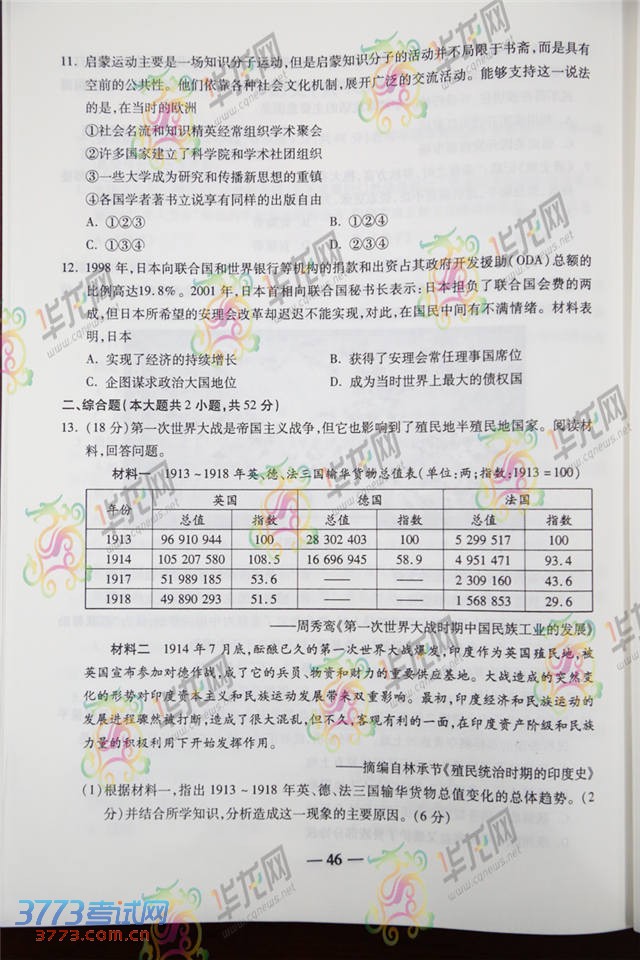 11. 启蒙运动主要是一场知识分子运动,但是启蒙知识分子的活动并不局限于书斋,而是具有
空前的公共性。他们依靠各种社会文化机制,展开广泛的交流活动。能够支持这一说法
的是,在当时的欧洲
①社会名流和知识精英经常组织学术聚会
②许多国家建立了科学院和学术社团组织
③一些大学成为研究和传播新思想的重镇
④各国学者著书立说享有同样的出版自由
A. ①②③ B. ①②④
C. ①③④ D. ②③④
12. 1998 年,日本向联合国和世界银行等机构的捐款和出资占其政府开发援助(ODA)总额的
比例高达19.8%。2001 年,日本首相向联合国秘书长表示:日本担负了联合国会费的两
成,但日本所希望的安理会改革却迟迟不能实现,对此,在国民中间有不满情绪。材料表
明,日本
A. 实现了经济的持续增长 B. 获得了安理会常任理事国席位
C. 企图谋求政治大国地位 D. 成为当时世界上最大的债权国
二、综合题(本大题共 2 小题,共 52 分)
13. (18 分)第一次世界大战是帝国主义战争,但它也影响到了殖民地半殖民地国家。阅读材
料,回答问题。
材料一 1913~1918 年英、德、法三国输华货物总值表(单位:两;指数:1913=100)
年份 英国 德国 法国
总值 指数 总值 指数 总值 指数
1913 96 910 944 100 28 302 403 100 5 299 517 100
1914 105 207 580 108.5 16 696 945 58.9 4 951 471 93.4
1917 51 989 185 53.6 —— —— 2 309 160 43.6
1918 49 890 293 51.5 —— —— 1 568 853 29.6
——周秀鸾《第一次世界大战时期中国民族工业的发展》
材料二 1914 年 7 月底,酝酿已久的第一次世界大战爆发,印度作为英国殖民地,被
英国宣布参加对德作战,成了它的兵员、物资和财力的重要供应基地。大战造成的突然变
化的形势对印度资本主义和民族运动发展带来双重影响。最初,印度经济和民族运动的
发展进程骤然被打断,造成了很大混乱,但不久,客观有利的一面,在印度资产阶级和民族
力量的积极利用下开始发挥作用。
——摘编自林承节《殖民统治时期的印度史》
(1)根据材料一,指出 1913~1918 年英、德、法三国输华货物总值变化的总体趋势。(2
分)并结合所学知识,分析造成这一现象的主要原因。(6 分)
— 46 —
3773考试网
3773.com.cn
华龙网
www.cqnews.net